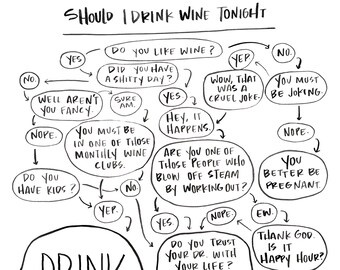 SHOULD I DRINK WINE TONIGHT
DO YOU LIKE WINE?
YES
NO.
DID YOU HAVE
A SHITTY DAY?
YEP
NO.
WOW, THAT
WAS A
CRUEL JOKE.
YOU MUST
BE JOKING.
WELL AREN'T
YOU FANCY.
SURE
AM.
YES
HEY, IT
HAPPENS.
NOPE.
YOU MUST BE
IN ONE OF THOSE
MONTHLY WINE
CLUBS.
NOPE.
ARE YOU ONE OF
THOSE PEOPLE WHO
BLOW OFF STEAM
BY WORKING OUT?
YOU
BETTER BE
PREGNANT.
DO YOU
HAVE KIDS?
NO
YEP.
YES.
NOPE.
EW.
THANK GOD.
IS IT
HAPPY HOUR?
DO YOU TRUST
YOUR DR. WITH
YOUR LIFE?
DRINK